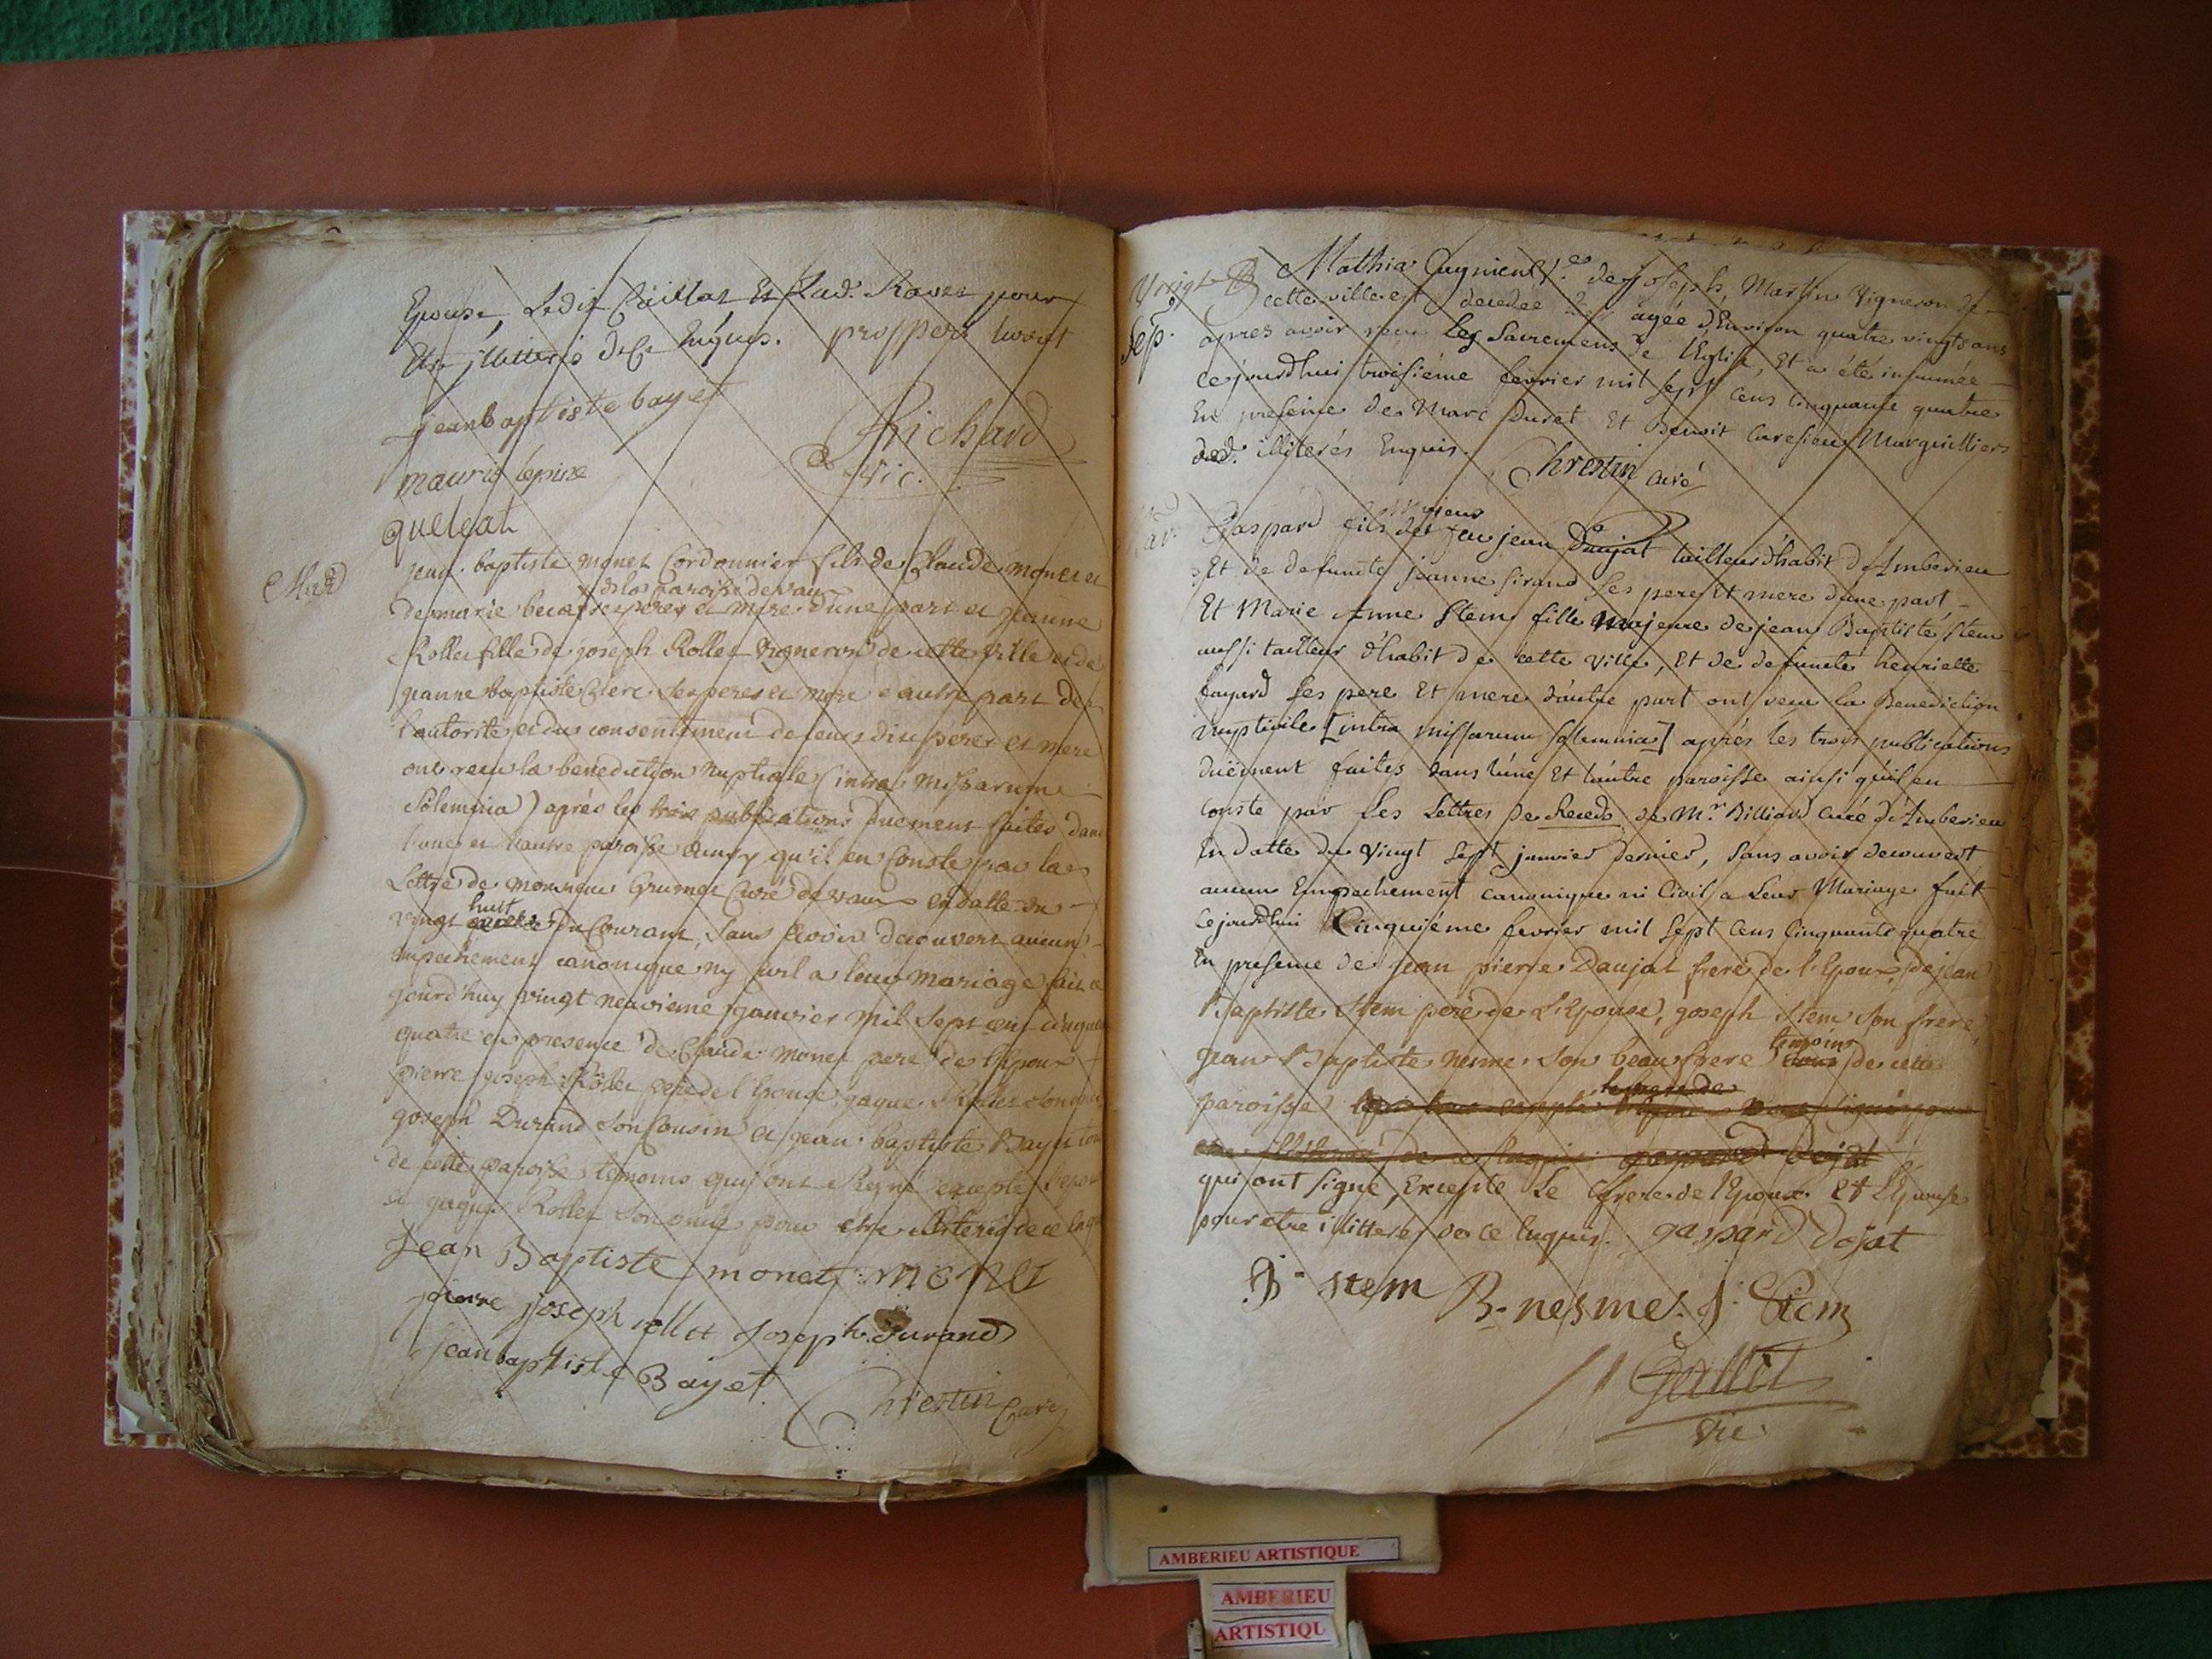 Epouse, Ledit Caillat Et Rave pour
Etre illitterés de ce Enquis. prosppert
jeanbaptiste bayet
Richard
Vic.
mauris lepine
quelcat
Mar
jean baptiste monet Cordonnier fils de Claude monet et
de la Paroisse de vau
de marie ses peres et mere d'une part et jeanne
Rollet fille de joseph Rollet Vigneron de cette ville et de
jeanne baptiste Clerc ses peres et mere d'autre part de
l'autorité et du consentement de leurs dits peres et mere
ont recu la benediction nuptiale (intra missarum
Solemnia) aprés les trois publications duement faites dans
l'une et l'autre paroisse qu'il en Conste par la
Lettre de monsieur Grumet Curé de vaux en datte du
huit
vingt du Courant, Sans avoir decouvert aucun
empechement canonique ny civil a leur mariage fait ce
jourd'huy vingt neuvieme janvier mil Sept cent cinquante
quatre en presence de Claude monet pere de l'epoux
pierre joseph Rollet pere de l'Epouse, jaque Rollet son oncle
joseph Durand Son Cousin et jean baptiste Bayet tous
de cette paroisse temoins qui ont Signé excepté l'epouse
et jaque Rollet Son oncle pour être illiterés de ce
Jean Baptiste monet MONET
pierre joseph rollet Joseph durand
jeanbaptiste Bayet
Chrestin Curé
Sep.
Mathia Cugnient de joseph Martin Vigneron de
cette ville est decedée agée d'Environ quatre vingts ans
apres avoir reçu Les Sacremens de l'Eglise, Et a été inhumée
ce jourdhui troisiéme fevrier mil Sept Cens Cinquante quatre
En presence de Marc Duret Et Benoit Marguilliers
illiterés Enquis.
Chrestin curé
majeur
Gaspard fils de feu jean Daujat tailleur d'habit d'Amberieu
Et de defuncte jeanne Sirand Ses pere Et mere d'une part
Et Marie Anne Stem fille Majeure de jean Baptiste Stem
aussi tailleur d'habit de cette ville, Et de defuncte henriette
fayard Ses pere Et mere d'autre part ont recu la Benediction
nuptiale [intra missarum solemnia] aprés les trois publications
duëment faites dans l'une Et l'autre paroisse ainsi qu'il en
conste par les Lettres de Recedo de Mr. Billiard Curé d'Amberieu
En datte du vingt Sept janvier dernier, Sans avoir decouvert
aucun Empechement canonique ni Civil a Leur Mariage fait
Cejourdhui Cinquiéme fevrier mil Sept Cens Cinquante quatre
En presence de jean pierre Daujat frere de l'Epoux, de jean
Baptiste Stem pere de L'Epouse, joseph Stem Son frere
jean Baptiste nesme Son beau frere temoins tous de cette
paroisse
le frere de
gaspard dojat
qui ont signé, Excepté Le frere de l'Epoux Et l'Epouse
pour etre illitterés de ce Enquis. gaspard dojat
J B stem B. nesme. J. Stem
Vic.
AMBERIEU ARTISTIQUE
AMBERIEU
ARTISTIQU